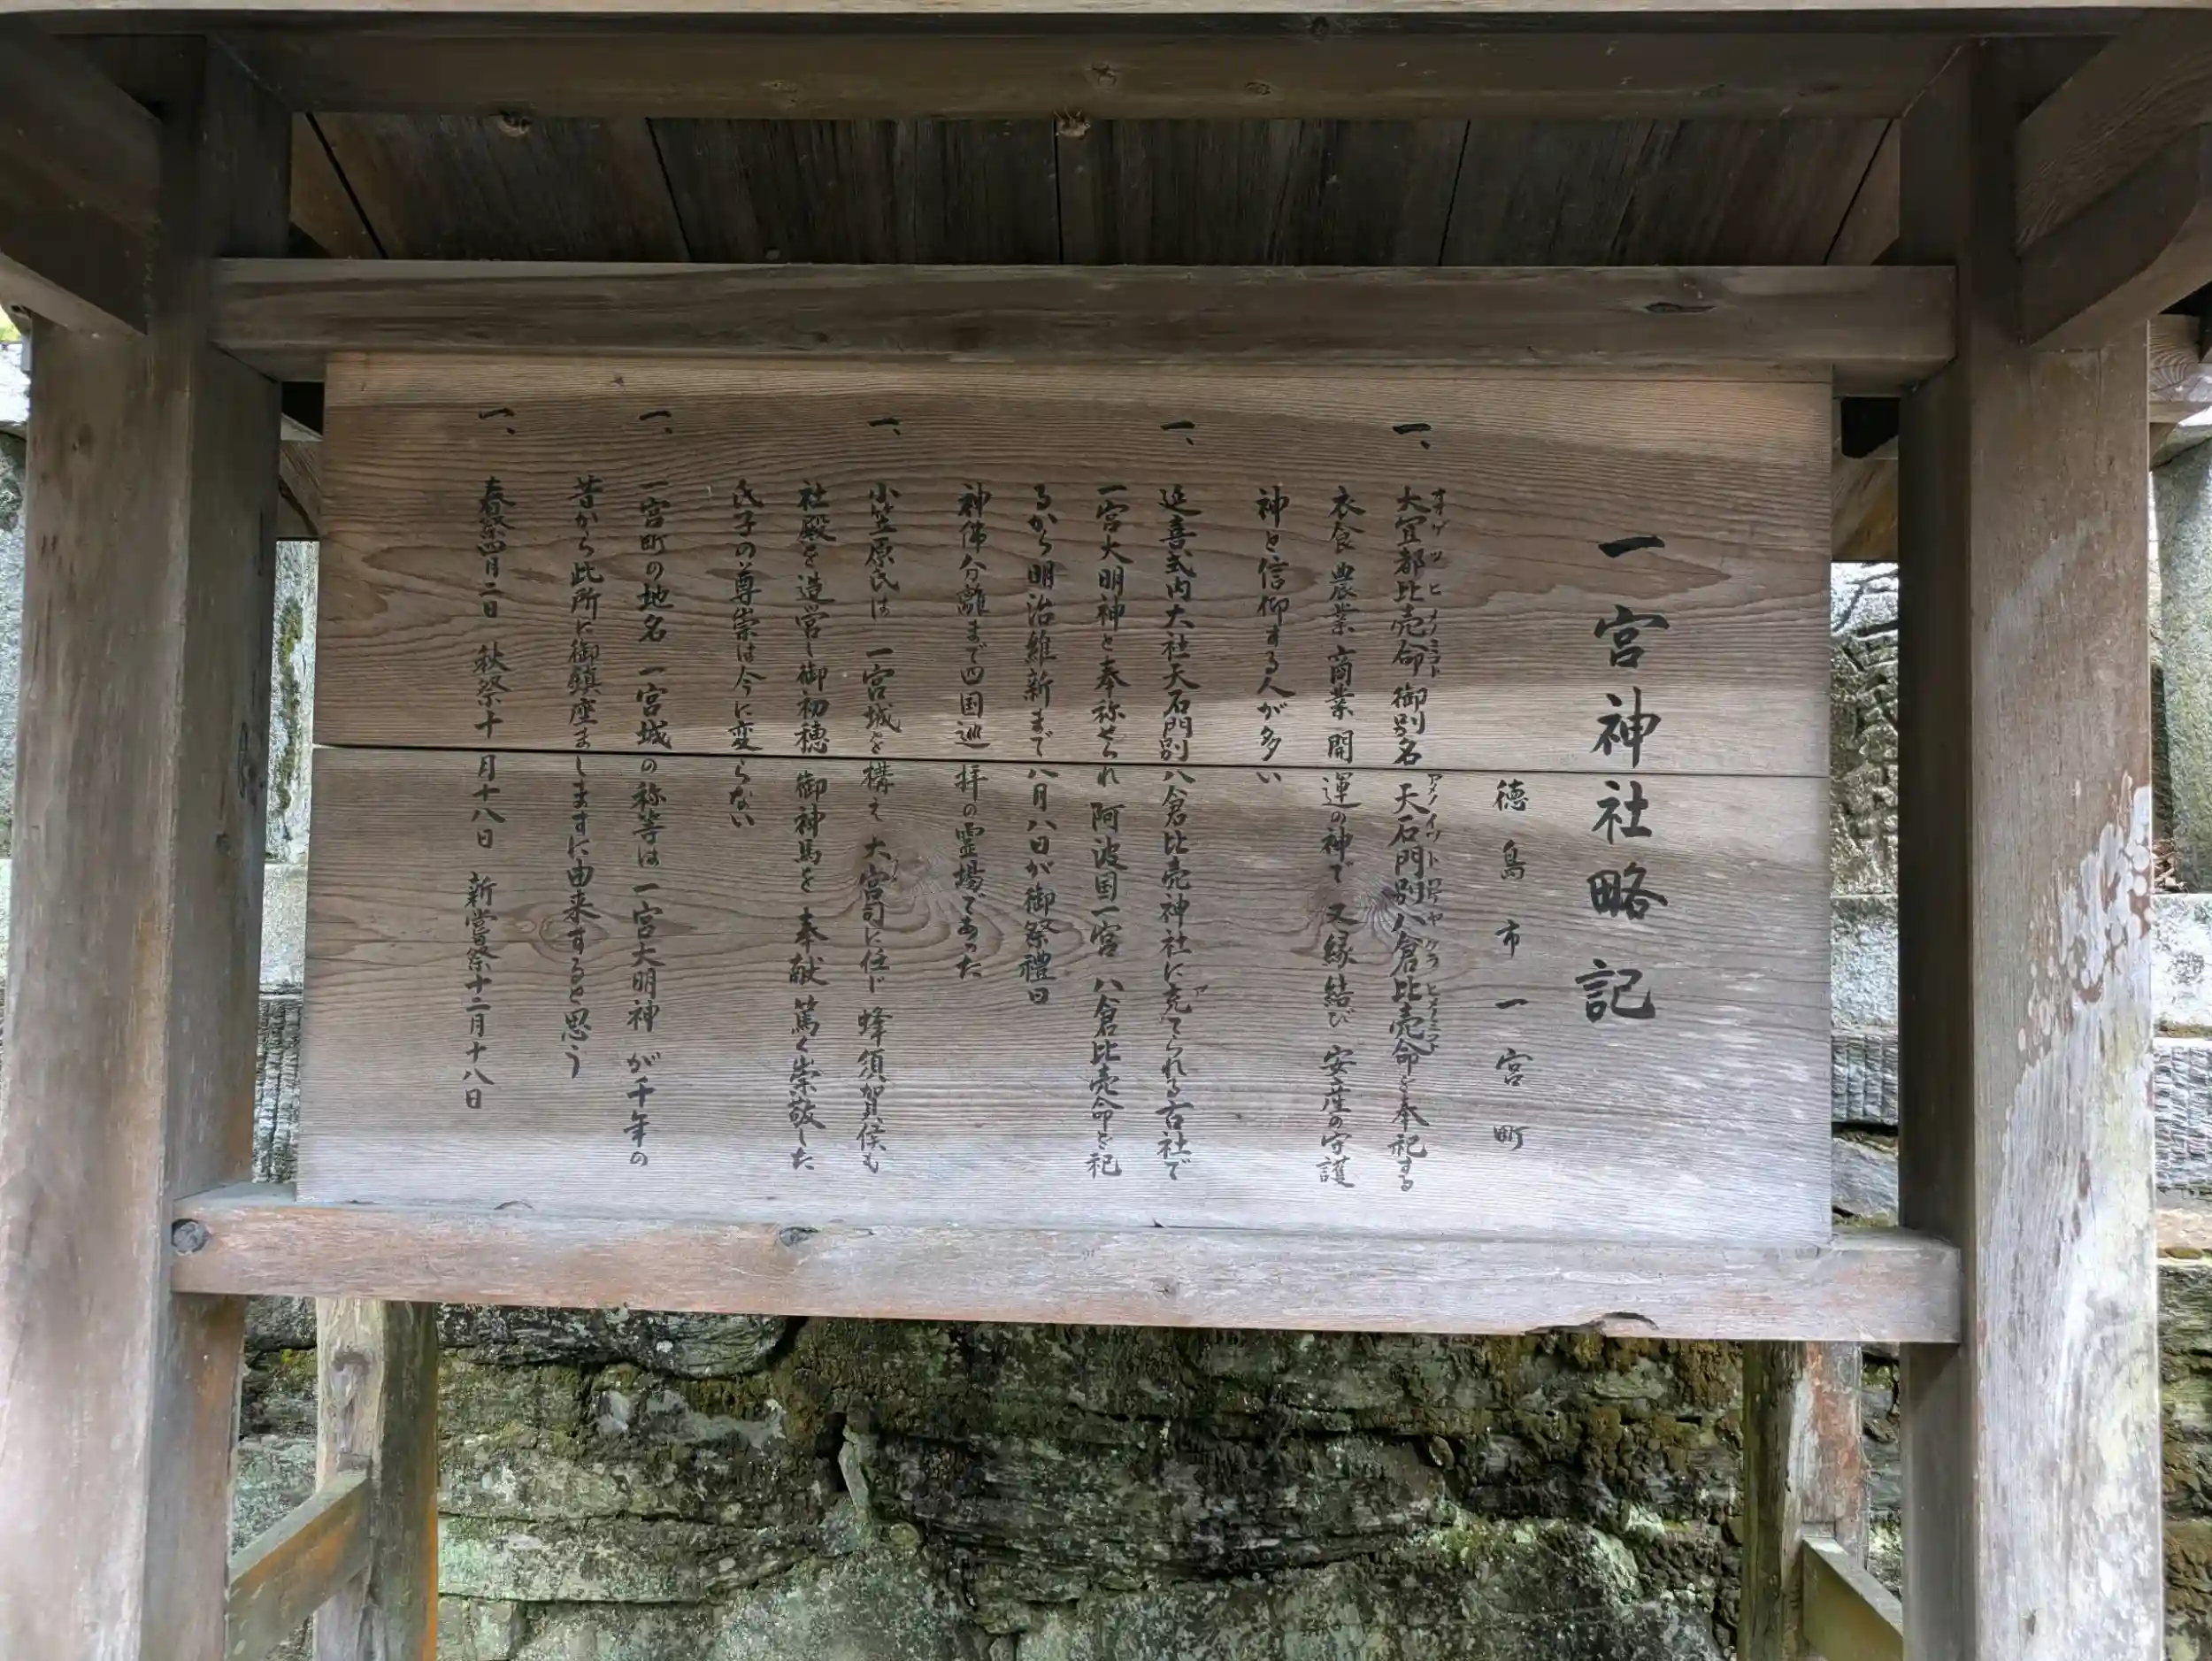 一宮神社略記
徳島市一宮町
一、大宜都比売命御別名 天石門別八倉比売命を奉祀する
衣食 農業 商業 開運の神で 又縁結び 安産の守護
神と信仰する人が多い
一、延喜式内大社天石門別八倉比売神社に充てられる古社で
一宮大明神と奉称せられ 阿波国一宮 八倉比売命を祀
るから明治維新まで八月八日が御祭禮日
神佛分離まで四国巡拝の霊場であった
一、小笠原氏は 一宮城を構え 大宮司に任じ 蜂須賀侯も
社殿を造営し御初穂 御神馬を 奉献 篤く崇敬した
氏子の尊崇は今に変らない
一、一宮町の地名 一宮城の称等は 一宮大明神 が千年の
昔から此所に御鎮座ましますに由来すると思う
一、春祭四月二日 秋祭十月十八日 新嘗祭十二月十八日